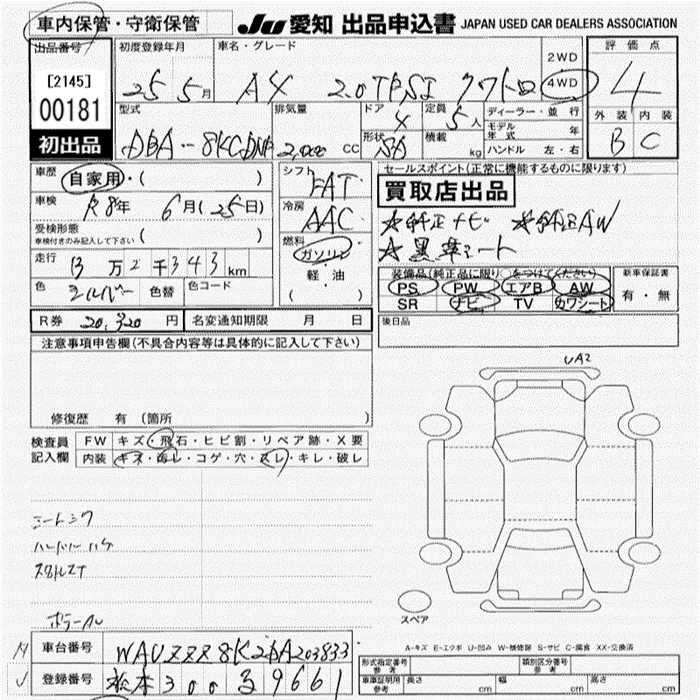 車内保管・守衛保管
JU 愛知 出品申込書 JAPAN USED CAR DEALERS ASSOCIATION
出品番号
[2145]
00181
初出品
初度登録年月
25 5月
車名・グレード
A4 2.0TFSI クワトロ
2WD
4WD
評価点
4
外装 内装
B C
型式
DBA-8KCDNF
排気量
2,000 cc
ドア
4
形状
SD
定員
5人
積載
kg
ディーラー・並行
モデル年式 年
ハンドル 左・右
車歴
自家用・( )
車検
R8年 6月(25日)
受検形態
車検付きのみ記入して下さい ( )
走行
13万2千343km
色
シルバー
色替
色コード
シフト
FAT
冷房
AAC
燃料
ガソリン
軽・油
( )
セールスポイント(正常に機能するものに限ります)
買取店出品
☆純正ナビ ☆純正AW
☆黒革シート
装備品(純正品に限り○をつけてください)
PS PW エアB AW
SR ナビ TV カワシート
新車保証書
有・無
R券 20,320円
名変通知期限 月 日
後日品
注意事項申告欄(不具合内容等は具体的に記入して下さい)
修復歴 有 (箇所 )
検査員記入欄
FW キズ・飛石・ヒビ割・リペア跡・X要
内装 キズ・汚レ・コゲ・穴・スレ・キレ・破レ
シートシワ
ハンドルハゲ
スタッドレスT
ホテール
UA2
スペア
A-キズ E-エクボ U-凹み W-補修跡 S-サビ C-腐食 XX-交換済
車台番号
WAUZZZ8K2DA203833
登録番号
松本300 る 9661
形式指定番号
参考
類別区分番号
参考
車庫証明用
参考
長さ cm
幅 cm
高さ cm